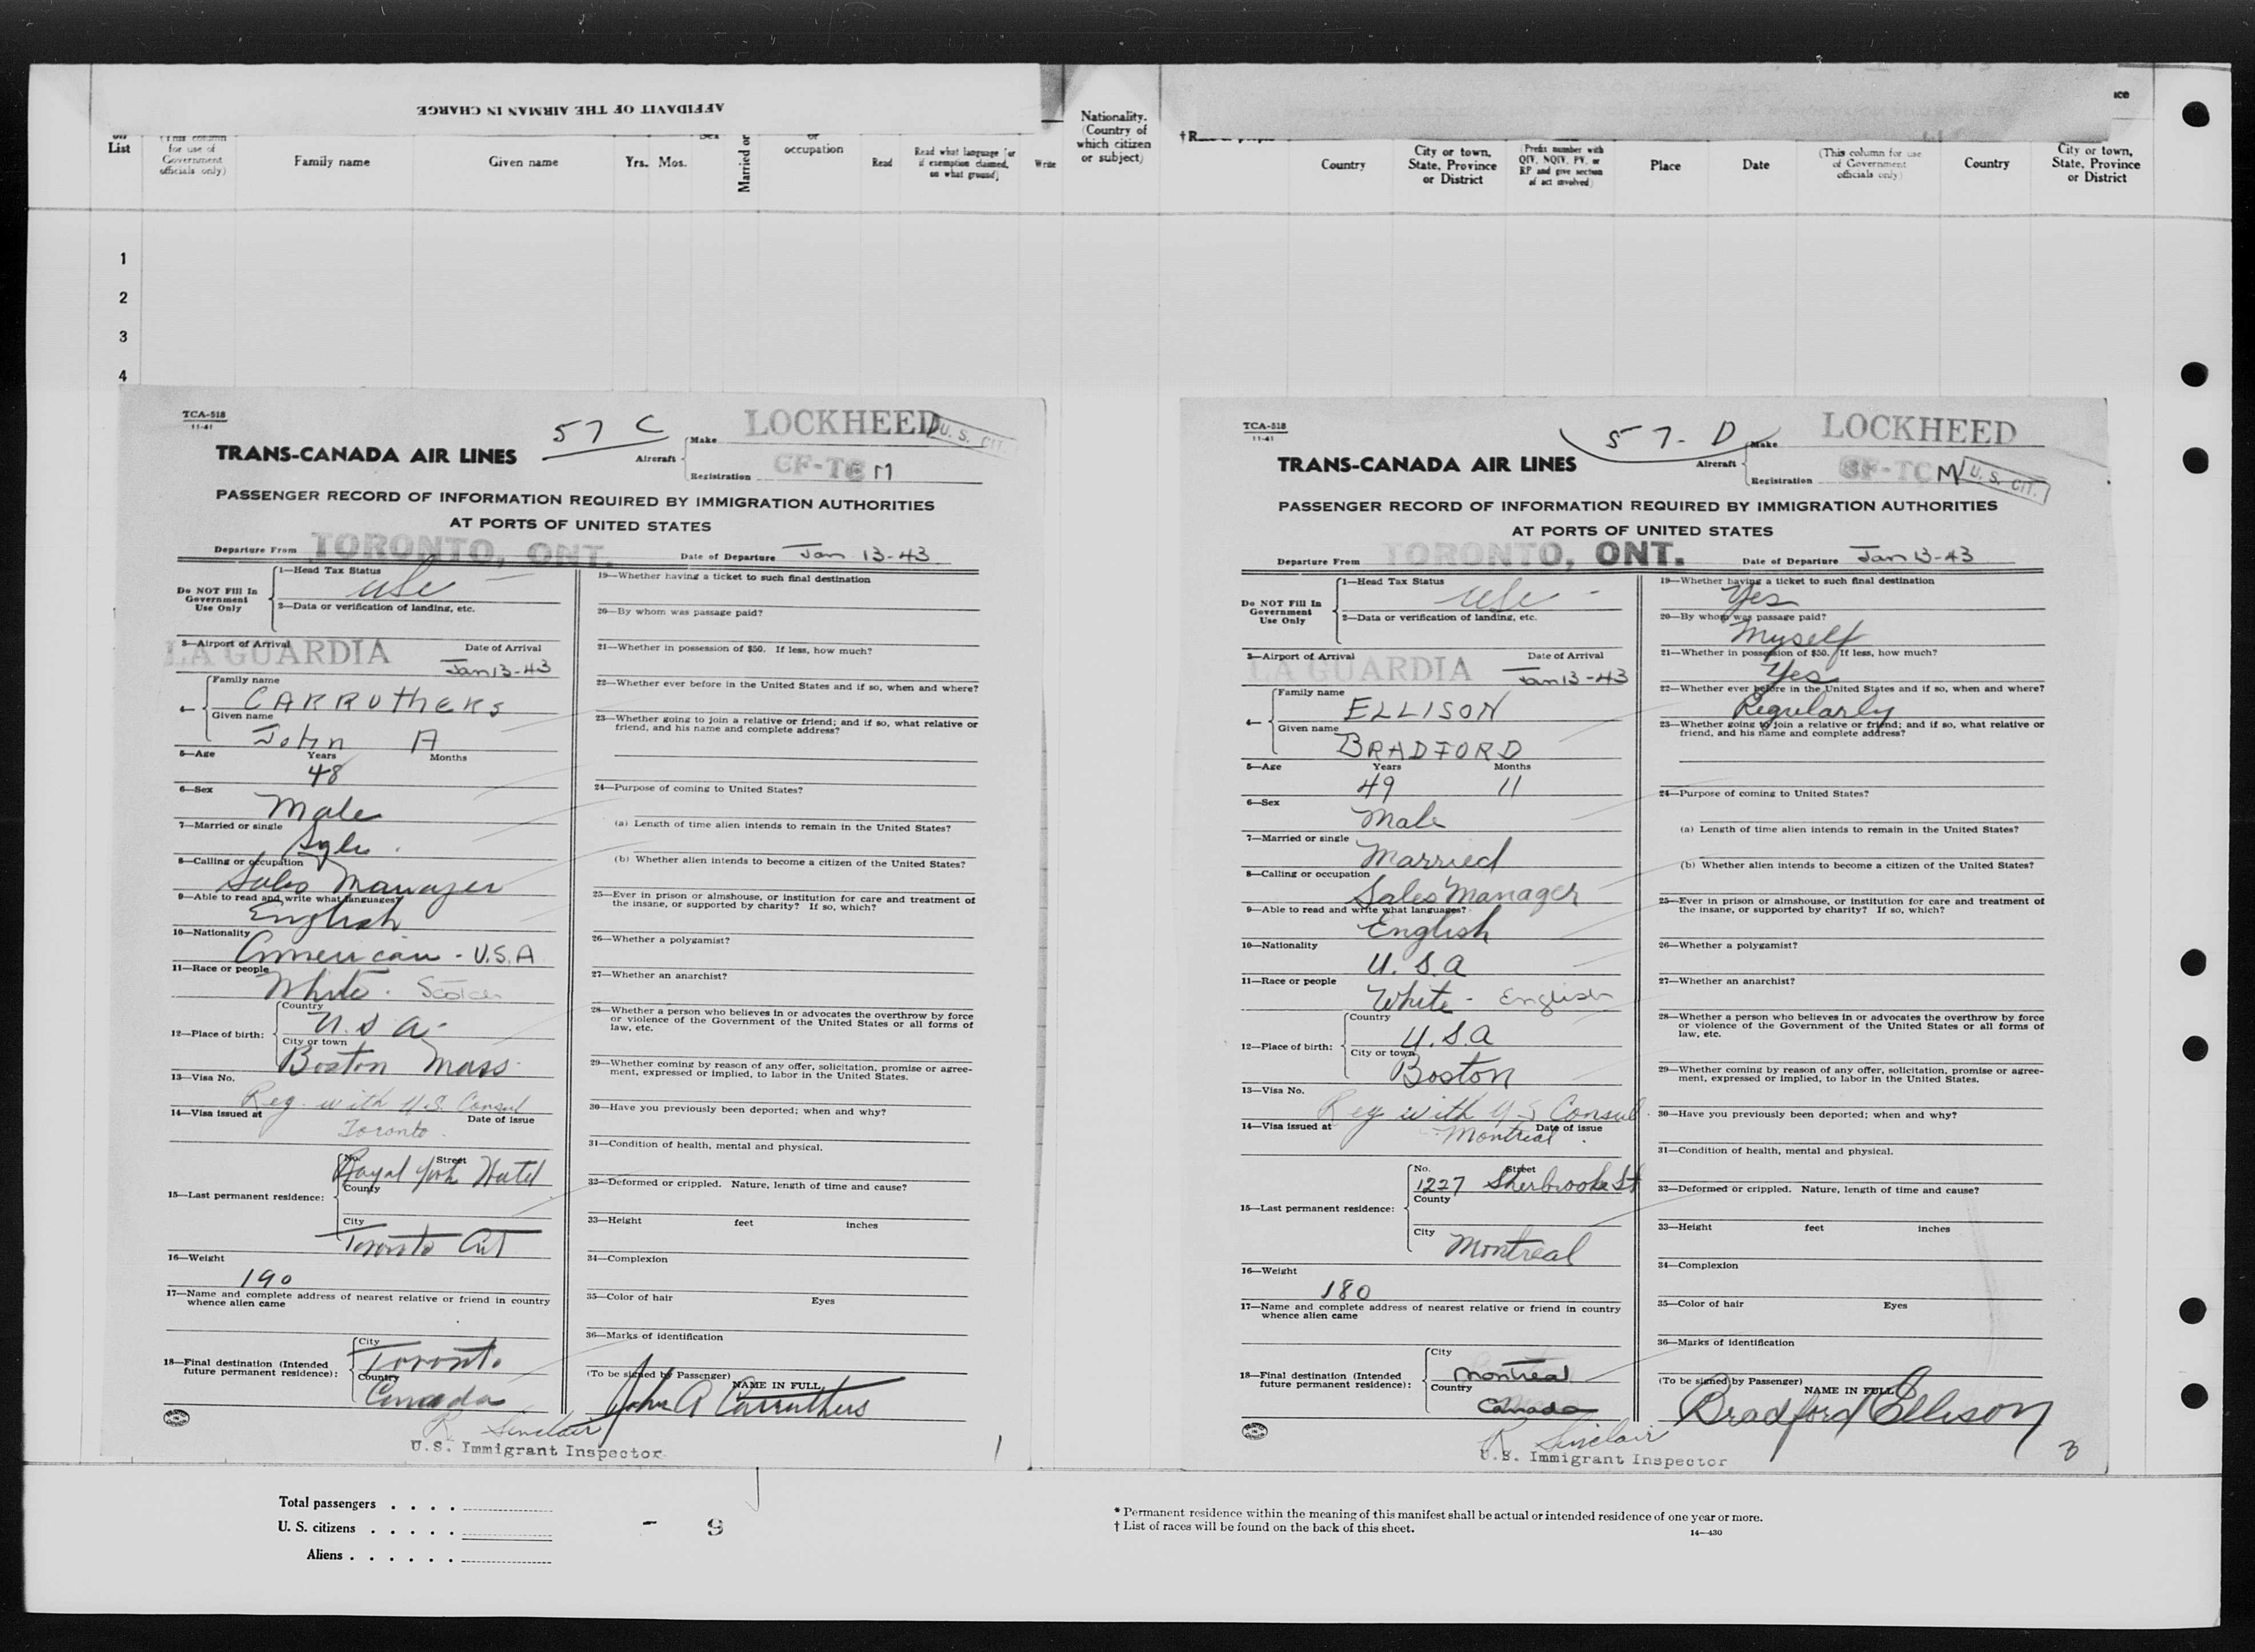 AFFIDAVIT OF THE AIRMAN IN CHARGE
List
(This column for use of Government officials only)
Family name
Given name
Yrs. Mos.
Married or
or occupation
Read
Read what language [or if exemption claimed, on what ground]
Write
Nationality. (Country of which citizen or subject)
Country
City or town, State, Province or District
(Prefix number with QIV, NQIV, PV, or RP and give section of act involved)
Place
Date
(This column for use of Government officials only)
Country
City or town, State, Province or District
1
2
3
4
TCA-518
11-41
57 C
TRANS-CANADA AIR LINES
Aircraft
Make LOCKHEED
U. S. CIT.
Registration CF-TC M
PASSENGER RECORD OF INFORMATION REQUIRED BY IMMIGRATION AUTHORITIES
AT PORTS OF UNITED STATES
Departure From TORONTO, ONT.
Date of Departure Jan 13-43
Do NOT Fill In Government Use Only
1—Head Tax Status
USC -
2—Data or verification of landing, etc.
3—Airport of Arrival
Date of Arrival
LA GUARDIA Jan 13-43
4—
Family name
CARRUTHERS
Given name
John A
5—Age Years Months
48
6—Sex
Male
7—Married or single
Sgle.
8—Calling or occupation
Sales Manager
9—Able to read and write what languages?
English
10—Nationality
American - U.S.A
11—Race or people
White. Scotch
12—Place of birth:
Country
U.S.A-
City or town
Boston Mass.
13—Visa No.
Reg. with U.S. Consul
14—Visa issued at
Date of issue
Toronto.
15—Last permanent residence:
No. Street
Royal York Hotel
County
City
Toronto Ont
16—Weight
190
17—Name and complete address of nearest relative or friend in country
whence alien came
18—Final destination (Intended
future permanent residence):
City
Toronto
Country
Canada
19—Whether having a ticket to such final destination
20—By whom was passage paid?
21—Whether in possession of $50. If less, how much?
22—Whether ever before in the United States and if so, when and where?
23—Whether going to join a relative or friend; and if so, what relative or
friend, and his name and complete address?
24—Purpose of coming to United States?
(a) Length of time alien intends to remain in the United States?
(b) Whether alien intends to become a citizen of the United States?
25—Ever in prison or almshouse, or institution for care and treatment of
the insane, or supported by charity? If so, which?
26—Whether a polygamist?
27—Whether an anarchist?
28—Whether a person who believes in or advocates the overthrow by force
or violence of the Government of the United States or all forms of
law, etc.
29—Whether coming by reason of any offer, solicitation, promise or agree-
ment, expressed or implied, to labor in the United States.
30—Have you previously been deported; when and why?
31—Condition of health, mental and physical.
32—Deformed or crippled. Nature, length of time and cause?
33—Height feet inches
34—Complexion
35—Color of hair Eyes
36—Marks of identification
(To be signed by Passenger)
NAME IN FULL
John A Carruthers
R Sinclair
U.S. Immigrant Inspector
1
TCA-518
11-41
57- D
TRANS-CANADA AIR LINES
Aircraft
Make LOCKHEED
Registration CF-TC M
U. S. CIT.
PASSENGER RECORD OF INFORMATION REQUIRED BY IMMIGRATION AUTHORITIES
AT PORTS OF UNITED STATES
Departure From TORONTO, ONT.
Date of Departure Jan 13-43
Do NOT Fill In Government Use Only
1—Head Tax Status
USC -
2—Data or verification of landing, etc.
3—Airport of Arrival
Date of Arrival
LA GUARDIA Jan 13-43
4—
Family name
ELLISON
Given name
BRADFORD
5—Age Years Months
49 11
6—Sex
Male
7—Married or single
Married
8—Calling or occupation
Sales Manager
9—Able to read and write what languages?
English
10—Nationality
U.S.A
11—Race or people
White - English
12—Place of birth:
Country
U.S.A
City or town
Boston
13—Visa No.
Reg with U S Consul.
14—Visa issued at
Date of issue
Montreal.
15—Last permanent residence:
No. Street
1227 Sherbrooke St
County
City
Montreal
16—Weight
180
17—Name and complete address of nearest relative or friend in country
whence alien came
18—Final destination (Intended
future permanent residence):
City
Montreal
Country
Canada
19—Whether having a ticket to such final destination
Yes
20—By whom was passage paid?
Myself
21—Whether in possession of $50. If less, how much?
Yes
22—Whether ever before in the United States and if so, when and where?
Regularly
23—Whether going to join a relative or friend; and if so, what relative or
friend, and his name and complete address?
24—Purpose of coming to United States?
(a) Length of time alien intends to remain in the United States?
(b) Whether alien intends to become a citizen of the United States?
25—Ever in prison or almshouse, or institution for care and treatment of
the insane, or supported by charity? If so, which?
26—Whether a polygamist?
27—Whether an anarchist?
28—Whether a person who believes in or advocates the overthrow by force
or violence of the Government of the United States or all forms of
law, etc.
29—Whether coming by reason of any offer, solicitation, promise or agree-
ment, expressed or implied, to labor in the United States.
30—Have you previously been deported; when and why?
31—Condition of health, mental and physical.
32—Deformed or crippled. Nature, length of time and cause?
33—Height feet inches
34—Complexion
35—Color of hair Eyes
36—Marks of identification
(To be signed by Passenger)
NAME IN FULL
Bradford Ellison
R Sinclair
U.S. Immigrant Inspector
3
Total passengers
U. S. citizens
Aliens
- 9
* Permanent residence within the meaning of this manifest shall be actual or intended residence of one year or more.
† List of races will be found on the back of this sheet.
14—430